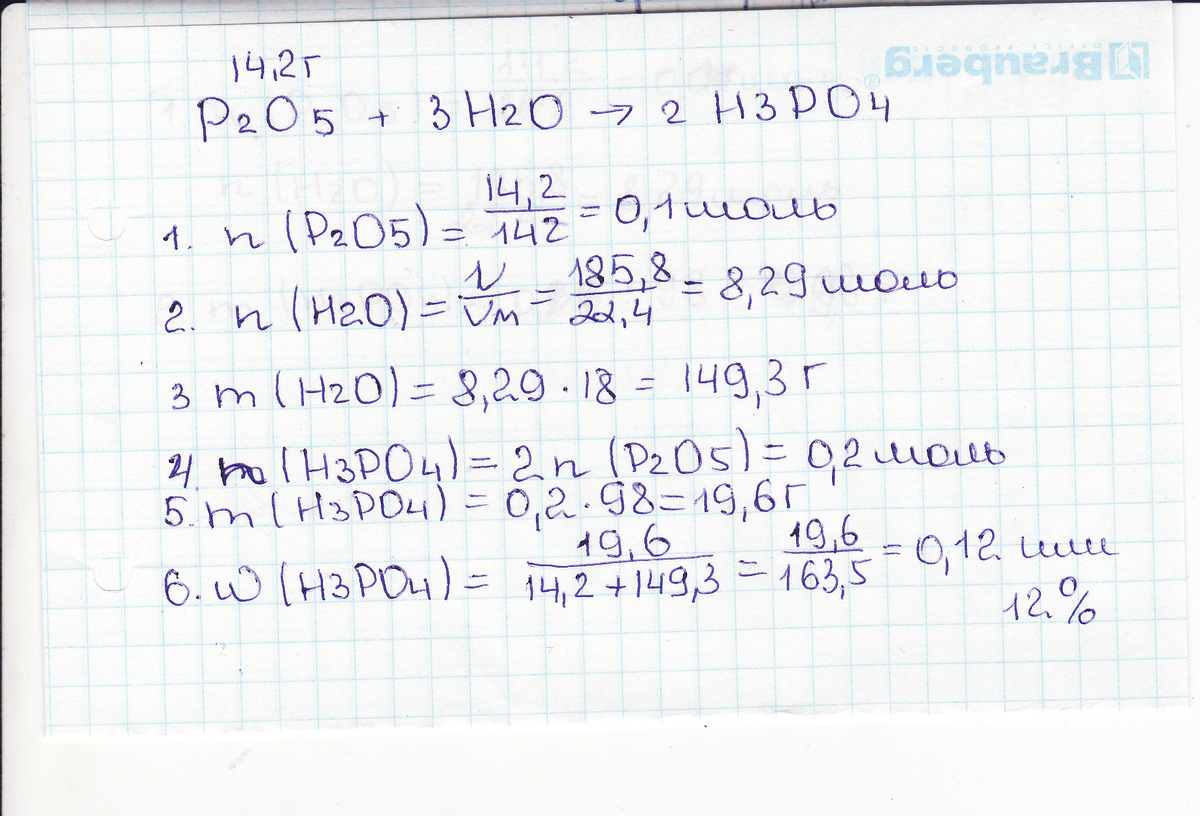 Brauberg
OFFICE PRODUCTS
®
14,2г
P2O5 + 3H2O → 2 H3PO4
1. n (P2O5) = 14,2/142 = 0,1 моль
2. n (H2O) = V/Vm = 185,8/22,4 = 8,29 моль
3 m (H2O) = 8,29 · 18 = 149,3 г
4. n (H3PO4) = 2n (P2O5) = 0,2 моль
5. m (H3PO4) = 0,2 · 98 = 19,6 г
6. w (H3PO4) = 19,6/14,2+149,3 = 19,6/163,5 = 0,12 или
12%